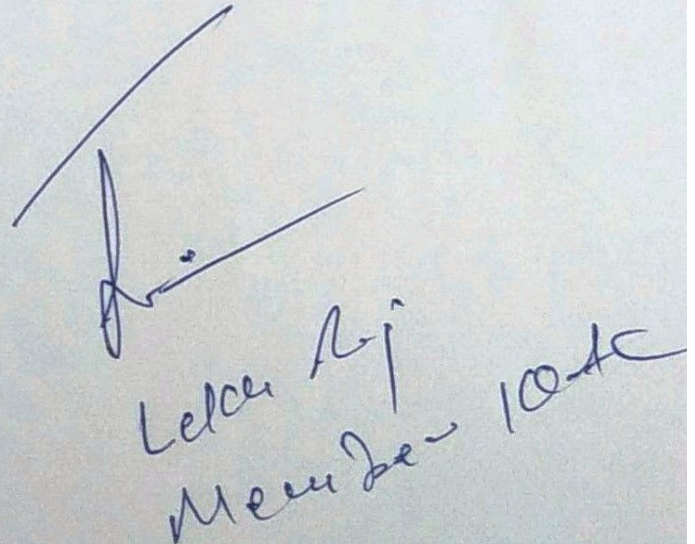 Lekh Raj
Member IQAC